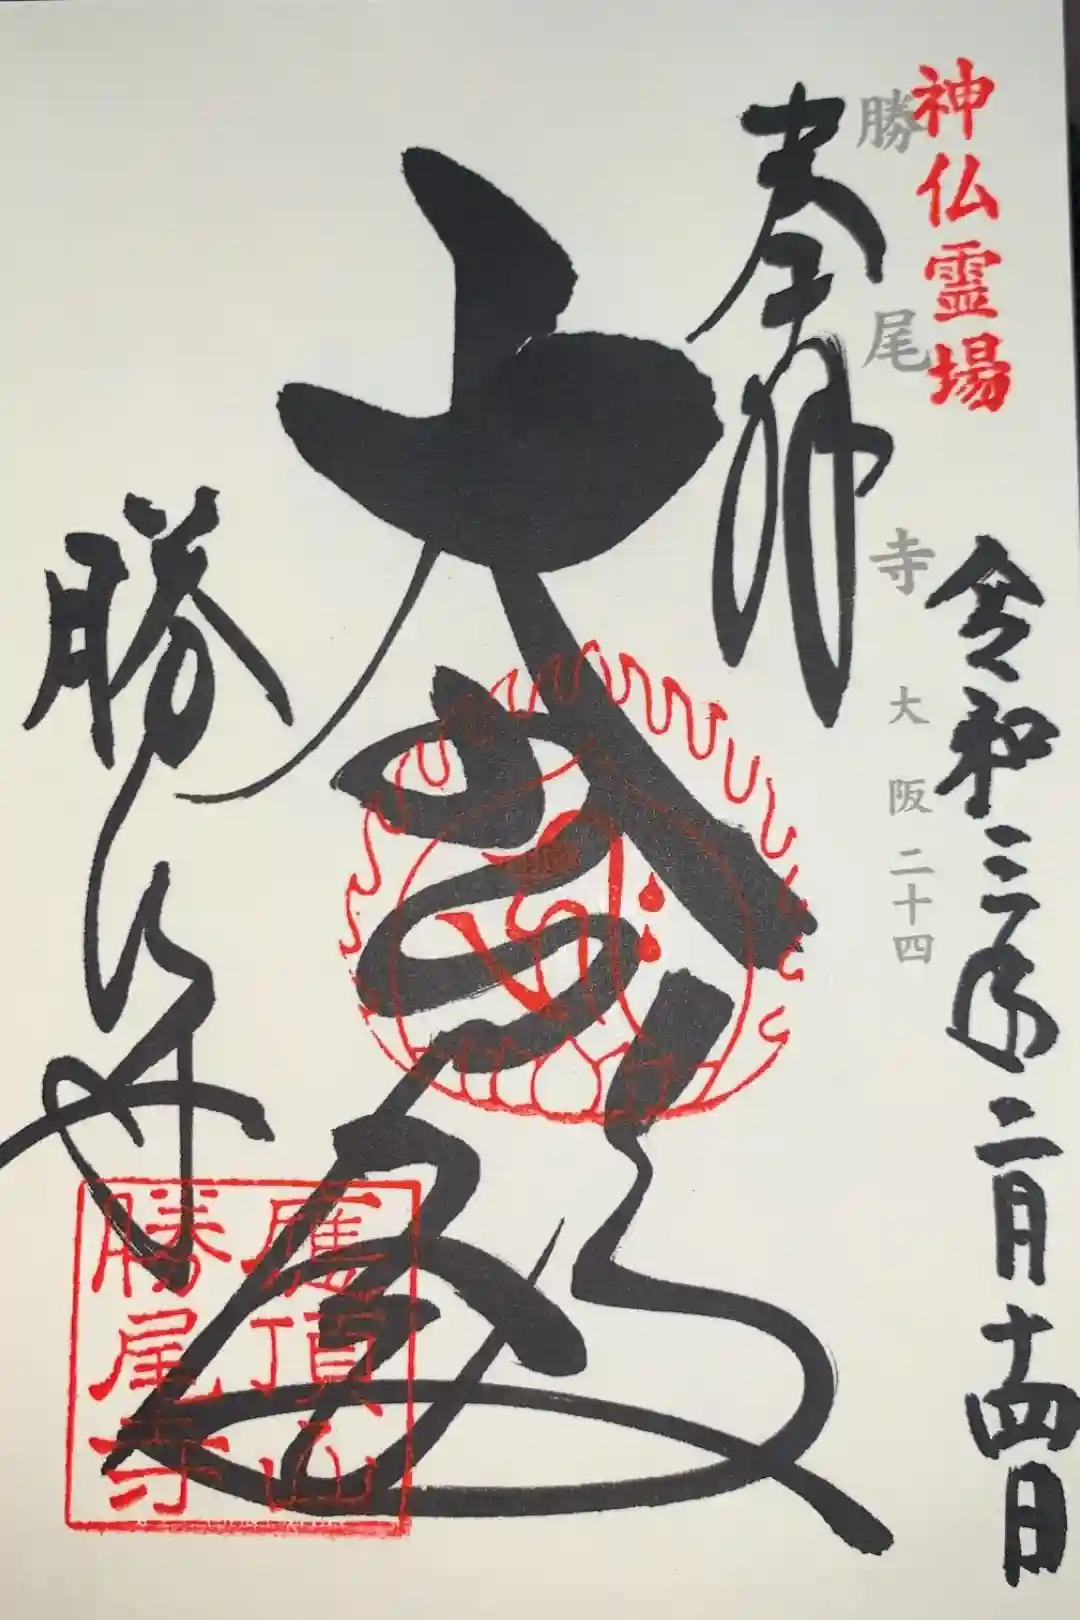 神仏霊場
勝尾寺 大阪二十四
令和三年二月十四日
奉拝
大悲殿
勝尾寺
應頂山
勝尾寺